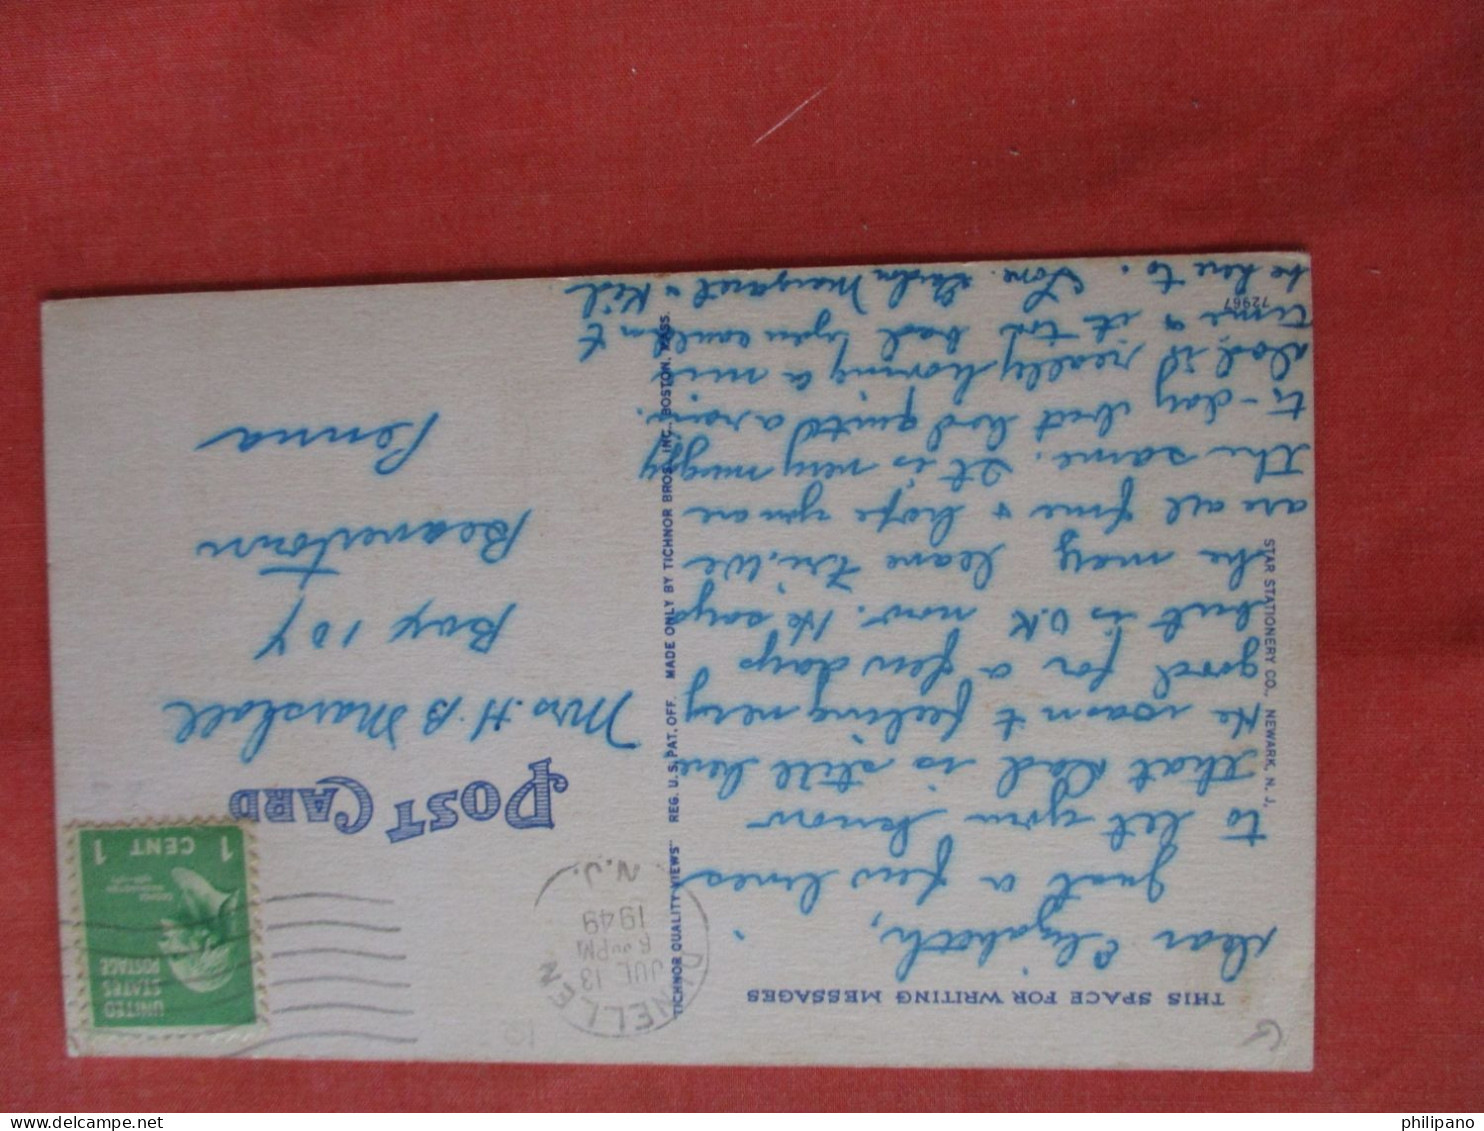 THIS SPACE FOR WRITING MESSAGES
Dear Elizabeth,
Just a few lines
to let you know
that Dad is still here
He wasn't feeling very
good for a few days
but is O.K. now. He says
he may leave Fri. We
are all fine & hope you are
the same. It is very muggy
to-day but had quite a rain.
Dad is really having a nice
time & it too bad you couldn't
be here to. Love. Margaret & Kid
72967
STAR STATIONERY CO., NEWARK, N. J.
TICHNOR QUALITY VIEWS" REG. U. S. PAT. OFF. MADE ONLY BY TICHNOR BROS. INC., BOSTON, MASS.
POST CARD
DUNELLEN
JUL 13
6 30 PM
1949
N.J.
UNITED
STATES
POSTAGE
1 CENT 1
Mrs. H B Marshall
Box 104
Beavertown
Penna
philipano